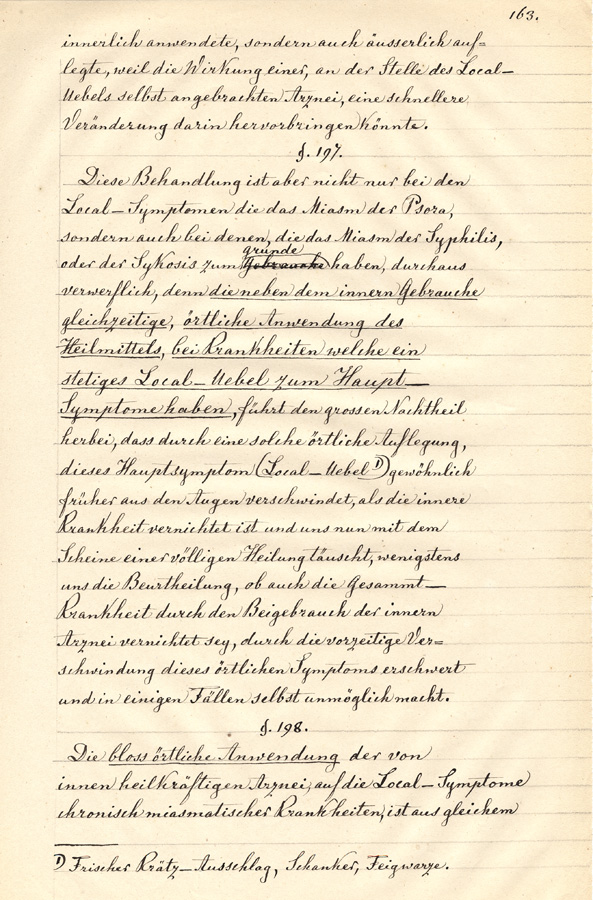 163.
innerlich anwendete, sondern auch äusserlich auf=
legte, weil die Wirkung einer, an der Stelle des Local-
Uebels selbst angebrachten Arznei, eine schnellere
Veränderung darin hervorbringen könnte.
§. 197.
Diese Behandlung ist aber nicht nur bei den
Local-Symptomen die das Miasm der Psora,
sondern auch bei denen, die das Miasm der Syphilis,
gründe
oder der Sykosis zum Gebrauche haben, durchaus
verwerflich, denn die neben dem innern Gebrauche
gleichzeitige, örtliche Anwendung des
Heilmittels, bei Krankheiten welche ein
stetiges Local-Uebel zum Haupt-
Symptome haben, führt den grossen Nachtheil
herbei, dass durch eine solche örtliche Auflegung,
dieses Hauptsymptom (Local-Uebel 1)) gewöhnlich
früher aus den Augen verschwindet, als die innere
Krankheit vernichtet ist und uns nun mit dem
Scheine einer völligen Heilung täuscht, wenigstens
uns die Beurtheilung, ob auch die Gesammt-
Krankheit durch den Beigebrauch der innern
Arznei vernichtet sey, durch die vorzeitige Ver=
schwindung dieses örtlichen Symptoms erschwert
und in einigen Fällen selbst unmöglich macht.
§. 198.
Die bloss örtliche Anwendung der von
innen heilkräftigen Arznei, auf die Local-Symptome
chronisch miasmatischer Krankheiten, ist aus gleichem
1) Frischer Krätz-Ausschlag, Schanker, Feigwarze.